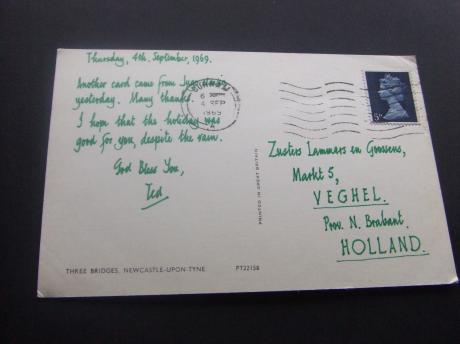 Thursday, 4th. September, 1969.
Another card came from
yesterday. Many thanks.
I hope that the holiday was
good for you, despite the rain.
God Bless You,
Ted
DURHAM
4 SEP
1969
5D
PRINTED IN GREAT BRITAIN
Zusters Lammers en Goossens,
Markt 5,
VEGHEL.
Prov. N. Brabant.
HOLLAND.
THREE BRIDGES, NEWCASTLE-UPON-TYNE
PT22158